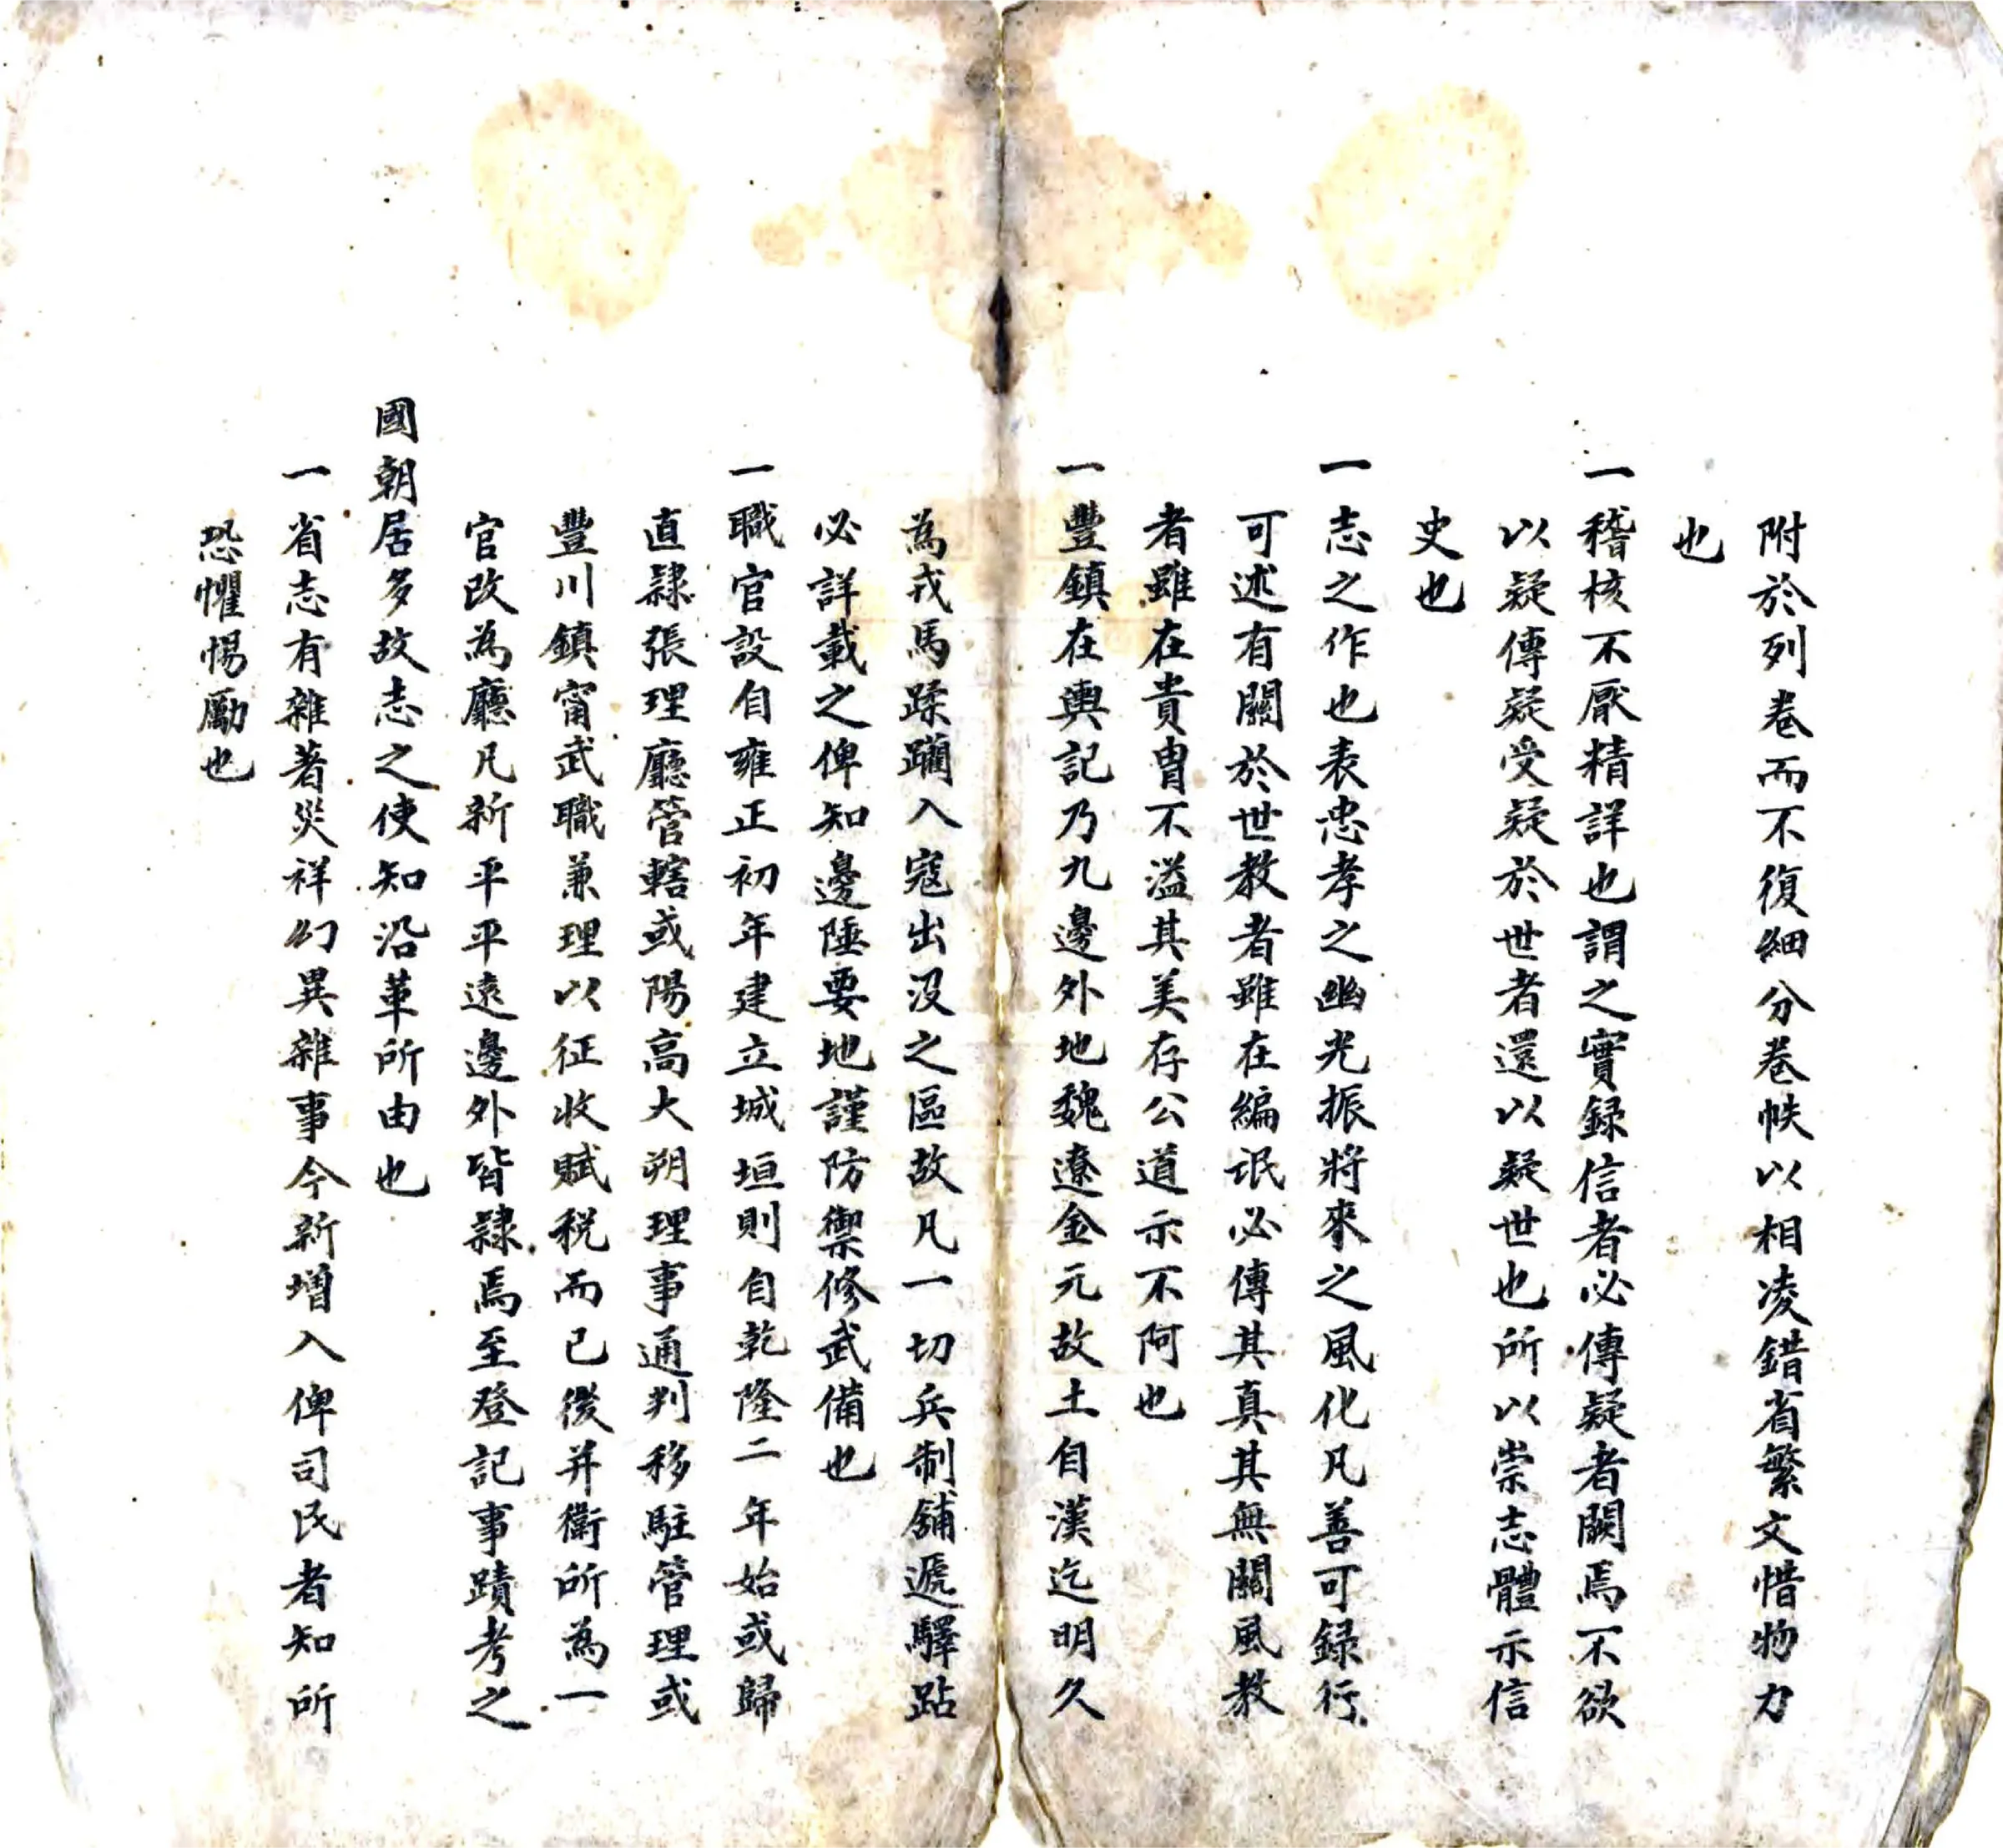 附於列卷而不復細分卷帙以相凌錯省繁文惜物力
也
一稽核不厭精詳也謂之實録信者必傳疑者闕焉不欲
以疑傳疑受疑於世者還以疑世也所以崇志體示信
史也
一志之作也表忠孝之幽光振將來之風化凡善可録行
可述有關於世教者雖在編氓必傳其真其無關風教
者雖在貴胄不溢其美存公道示不阿也
一豐鎮在輿記乃九邊外地魏遼金元故土自漢迄明久
為戎馬蹂躪入寇出没之區故凡一切兵制舖遞驛跕
必詳載之俾知邊陲要地謹防禦修武備也
一職官設自雍正初年建立城垣則自乾隆二年始或歸
直隸張理廳管轄或陽高大朔理事通判移駐管理或
豐川鎮甯武職兼理以征收賦税而已後并衛所為一
官改為廳凡新平平遠邊外皆隸焉至登記事蹟考之
國朝居多故志之使知沿革所由也
一省志有雜著災祥幻異雜事今新增入俾司民者知所
恐懼惕勵也